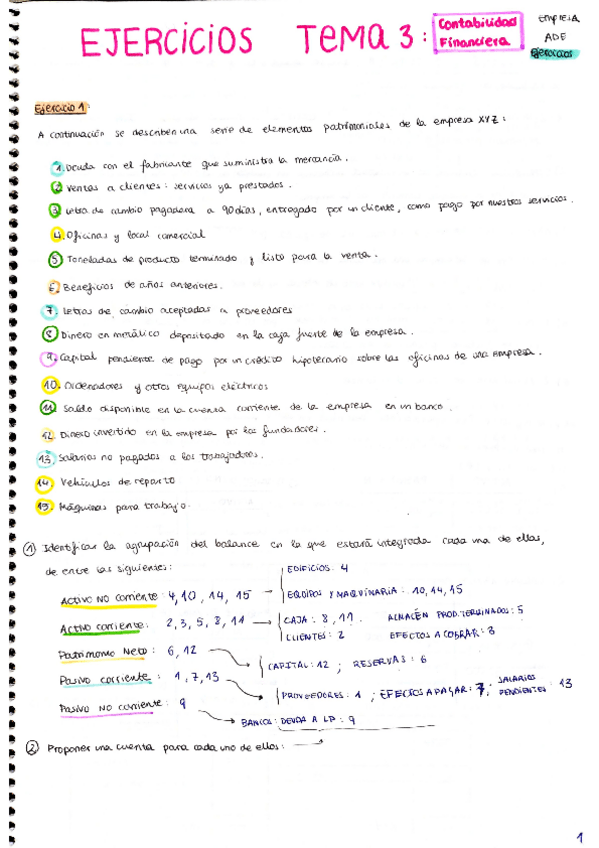 EJERCICIOS TEMA 3: Contabilidad Financiera
EMPRESA
ADE
Ejercicios
Ejercicio 1:
A continuación se describen una serie de elementos patrimoniales de la empresa XYZ:
1. Deuda con el fabricante que suministra la mercancía.
2. Ventas a clientes: servicios ya prestados.
3. Letra de cambio pagadera a 90 días, entregado por un cliente, como pago por nuestros servicios.
4. Oficinas y local comercial
5. Toneladas de producto terminado y listo para la venta.
6. Beneficios de años anteriores.
7. Letras de cambio aceptadas a proveedores
8. Dinero en metálico depositado en la caja fuerte de la empresa.
9. Capital pendiente de pago por un crédito hipotecario sobre las oficinas de una empresa.
10. Ordenadores y otros equipos eléctricos
11. Saldo disponible en la cuenta corriente de la empresa en un banco.
12. Dinero invertido en la empresa por los fundadores.
13. Salarios no pagados a los trabajadores.
14. Vehículos de reparto
15. Máquinas para trabajo.
① Identificar la agrupación del balance en la que estará integrada cada una de ellas,
de entre las siguientes:
EDIFICIOS: 4
ACTIVO NO corriente: 4, 10, 14, 15 → EQUIPOS Y MAQUINARIA: 10, 14, 15
Activo corriente: 2, 3, 5, 8, 11 → CAJA: 8, 11 ALMACÉN PROD. TERMINADOS: 5
CLIENTES: 2 EFECTOS A COBRAR: 3
Patrimonio Neto: 6, 12
CAPITAL: 12; RESERVAS: 6
Pasivo corriente: 1, 7, 13
PROVEEDORES: 1; EFECTOS A PAGAR: 7; SALARIOS PENDIENTES: 13
Pasivo NO corriente: 9
BANCOS: DEUDA A LP: 9
② Proponer una cuenta para cada uno de ellos: →
1